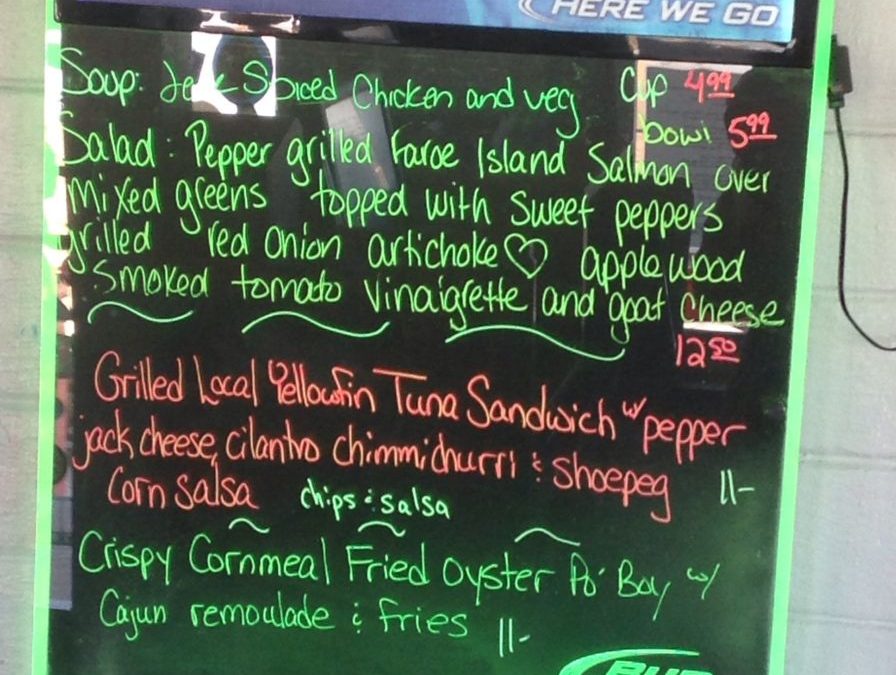 HERE WE GO
Soup: Jerk Spiced Chicken and veg Cup 4.99
bowl 5.99
Salad: Pepper grilled Faroe Island Salmon over
mixed greens topped with sweet peppers
grilled red onion artichoke♡ applewood
smoked tomato vinaigrette and goat cheese
12.50
Grilled Local Yellowfin Tuna Sandwich w/ pepper
jack cheese, cilantro chimmichurri & shoepeg
corn salsa chips & salsa 11-
Crispy Cornmeal Fried oyster Po' Boy w/
Cajun remoulade & fries 11-
BUD